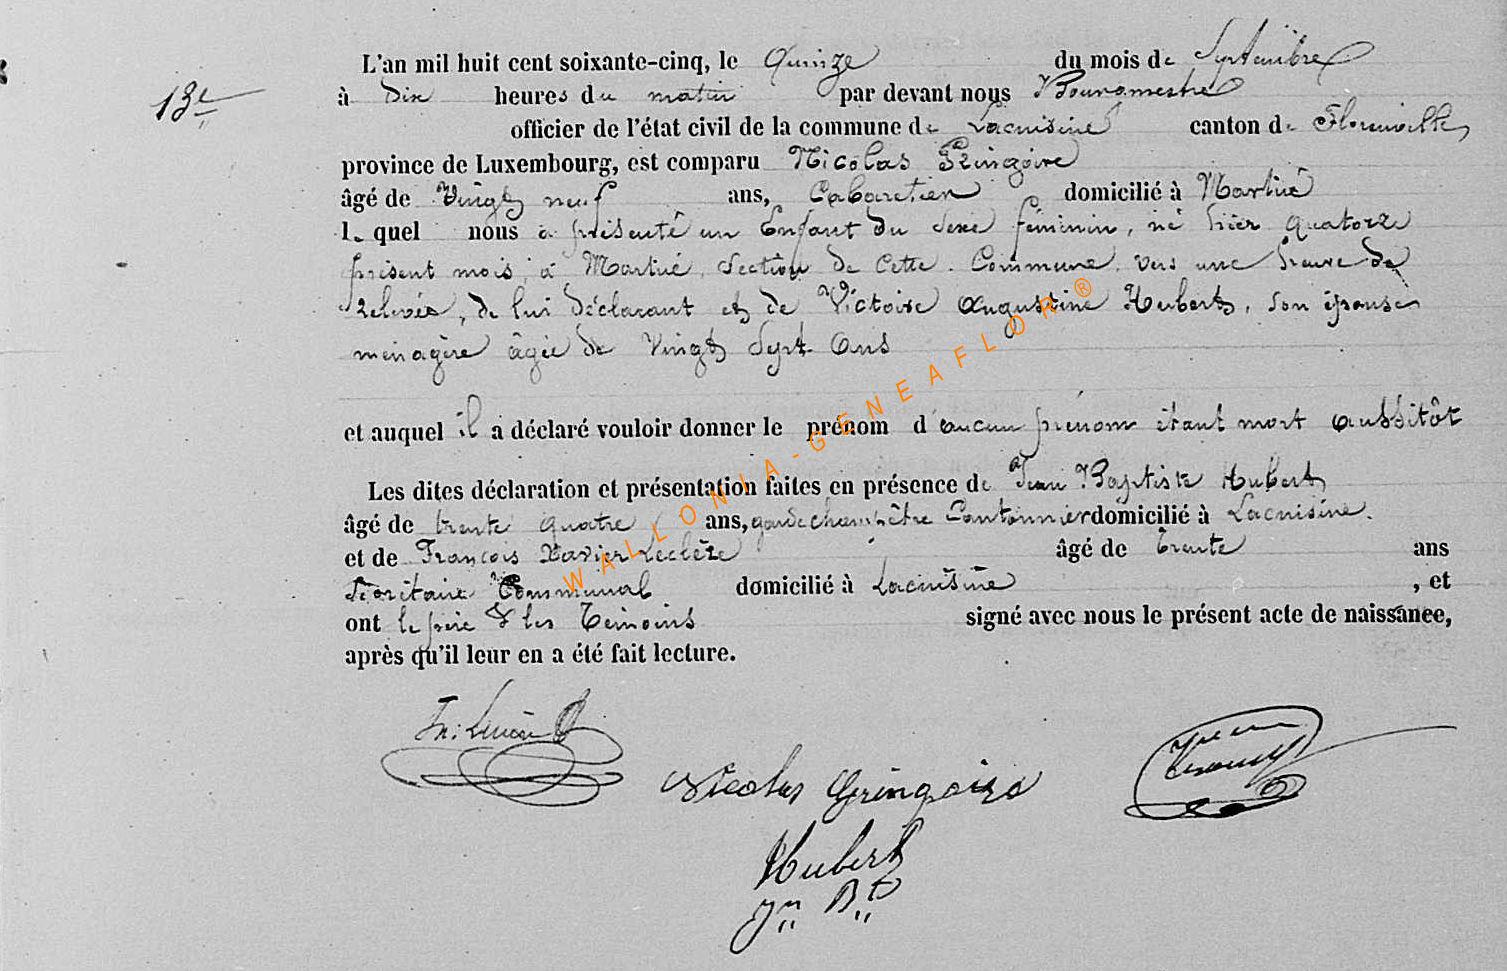 13e
L'an mil huit cent soixante-cinq, le Quinze du mois de Septembre
à Dix heures du matin par devant nous Bourgmestre
officier de l'état civil de la commune de Lacuisine canton de Florenville,
province de Luxembourg, est comparu Nicolas Gringoire
âgé de Vingt neuf ans, Cabaretier domicilié à Martué
lequel nous a présenté un Enfant du sexe féminin, né hier quatorze
présent mois, à Martué, section de cette Commune, vers une heure de
relevée, de lui déclarant et de Victoire Augustine Hubert, son épouse
ménagère âgée de Vingt Sept Ans
et auquel il a déclaré vouloir donner le prénom d'aucun prénom étant mort aussitôt
Les dites déclaration et présentation faites en présence de Jean Baptiste Hubert
âgé de trente quatre ans, garde champêtre Cantonnier domicilié à Lacuisine.
et de François Xavier Leclère âgé de trente ans
Secrétaire Communal domicilié à Lacuisine, et
ont le père & les Témoins signé avec nous le présent acte de naissance,
après qu'il leur en a été fait lecture.
Nicolas Gringoire
Hubert
Jn Bt
WALLONIA-GENEAFLOR®